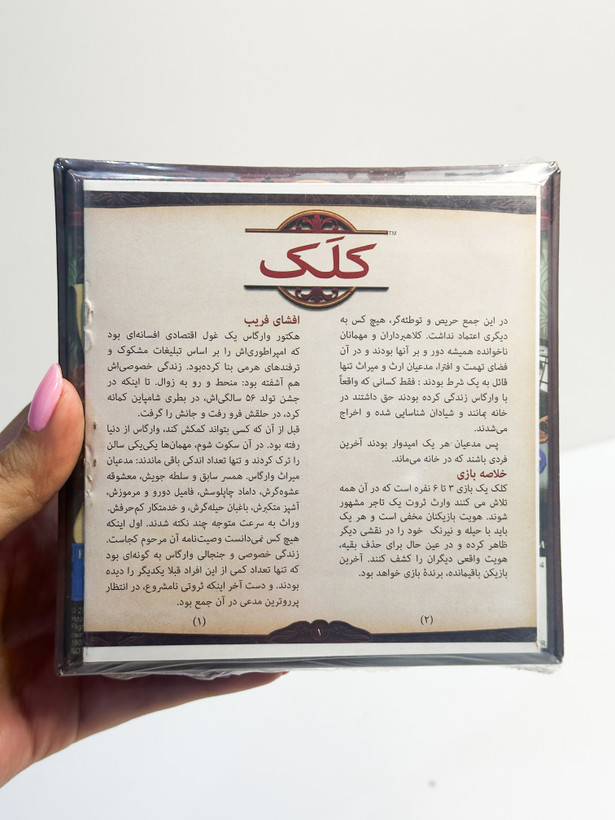 کلَک
TM
افشای فریب
هکتور وارگاس یک غول اقتصادی افسانه‌ای بود
که امپراطوری‌اش را بر اساس تبلیغات مشکوک و
ترفندهای هرمی بنا کرده‌بود. زندگی خصوصی‌اش
هم آشفته بود: منحط و رو به زوال. تا اینکه در
جشن تولد ۵۶ سالگی‌اش، در بطری شامپاین کمانه
کرد، در حلقش فرو رفت و جانش را گرفت.
قبل از آن که کسی بتواند کمکش کند، وارگاس از دنیا
رفته بود. در آن سکوت شوم، مهمان‌ها یکی‌یکی سالن
را ترک کردند و تنها تعداد اندکی باقی ماندند: مدعیان
میراث وارگاس. همسر سابق و سلطه جویش، معشوقه
عشوه‌گرش، داماد چاپلوسش، فامیل دورو و مرموزش،
آشپز متکبرش، باغبان حیله‌گرش، و خدمتکار کم‌حرفش.
وراث به سرعت متوجه چند نکته شدند. اول اینکه
هیچ کس نمی‌دانست وصیت‌نامه آن مرحوم کجاست.
زندگی خصوصی و جنجالی وارگاس به گونه‌ای بود
که تنها تعداد کمی از این افراد قبلا یکدیگر را دیده
بودند. و دست آخر اینکه ثروتی نامشروع، در انتظار
پرروترین مدعی در آن جمع بود.
(۱)
در این جمع حریص و توطئه‌گر، هیچ کس به
دیگری اعتماد نداشت. کلاهبرداران و مهمانان
ناخوانده همیشه دور و بر آنها بودند و در آن
فضای تهمت و افترا، مدعیان ارث و میراث تنها
قائل به یک شرط بودند : فقط کسانی که واقعاً
با وارگاس زندگی کرده بودند حق داشتند در
خانه بمانند و شیادان شناسایی شده و اخراج
می‌شدند.
پس مدعیان هر یک امیدوار بودند آخرین
فردی باشند که در خانه می‌ماند.
خلاصه بازی
کلک یک بازی ۳ تا ۶ نفره است که در آن همه
تلاش می کنند وارث ثروت یک تاجر مشهور
شوند. هویت بازیکنان مخفی است و هر یک
باید با حیله و نیرنگ خود را در نقشی دیگر
ظاهر کرده و در عین حال برای حذف بقیه،
هویت واقعی دیگران را کشف کنند. آخرین
بازیکن باقیمانده، برندهٔ بازی خواهد بود.
(۲)
۱